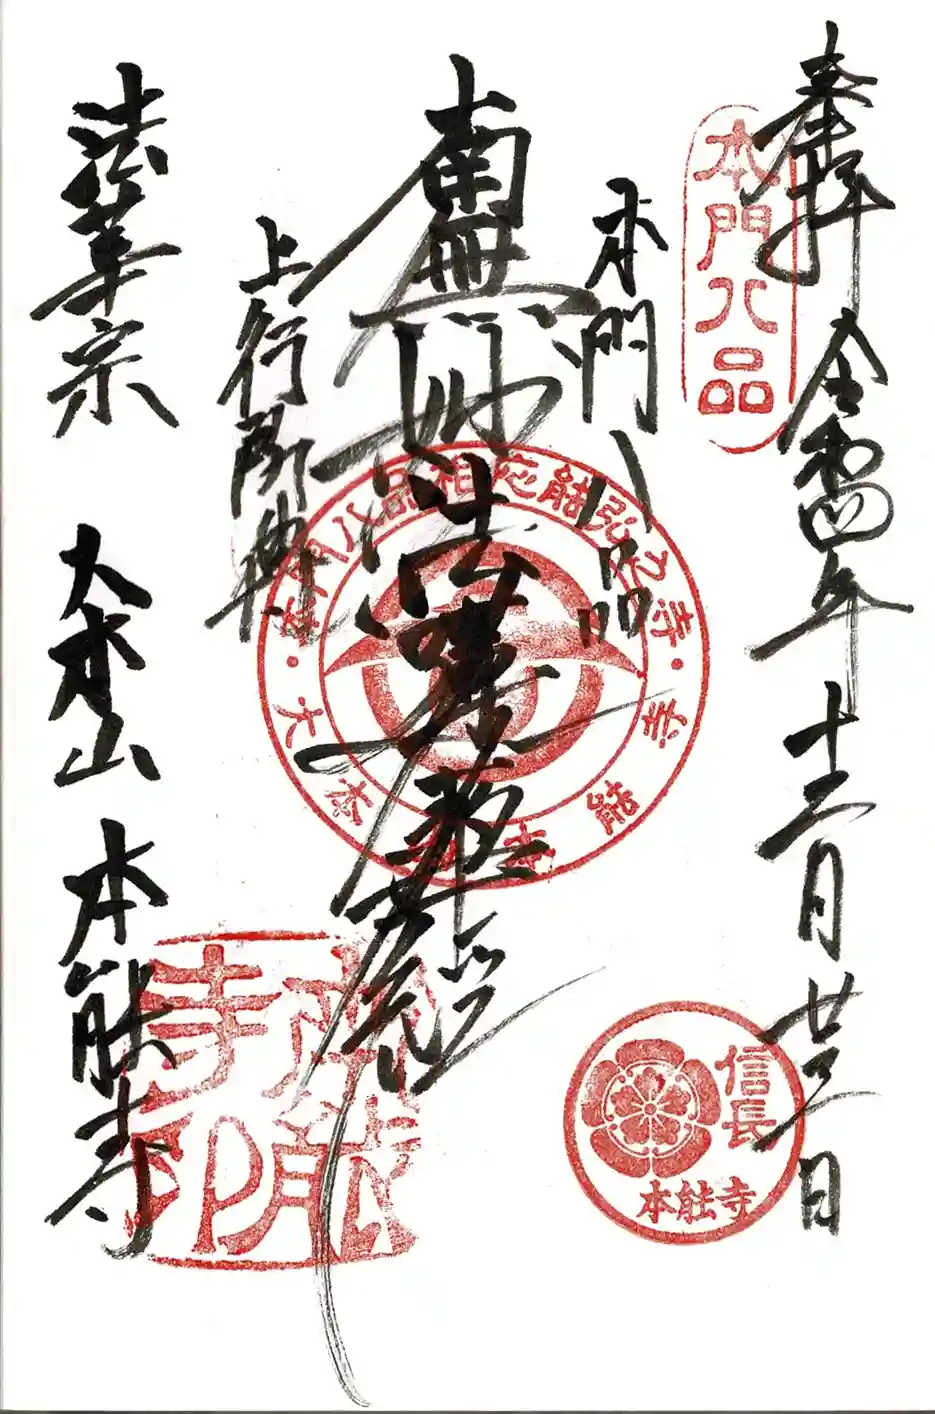 奉拝 令和四年 十二月 廿三日
本門八品
本門八品
南無妙法蓮華経
上行所伝
法華宗 大本山 本能寺
本門八品相応能弘之寺・大本山本能寺・
信長
本能寺
本能寺印